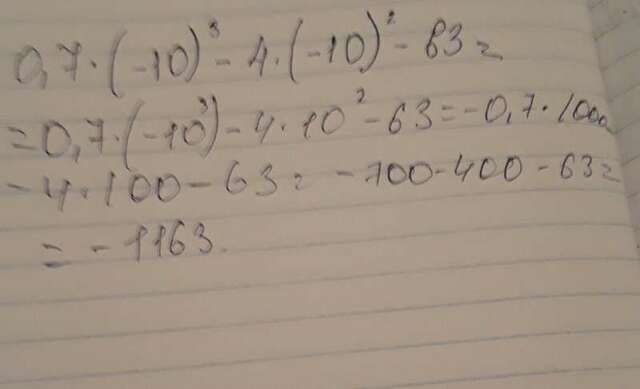 0,7·(-10)³-4·(-10)²-63=
=0,7·(-10³)-4·10²-63=-0,7·1000
-4·100-63=-700-400-63=
=-1163.